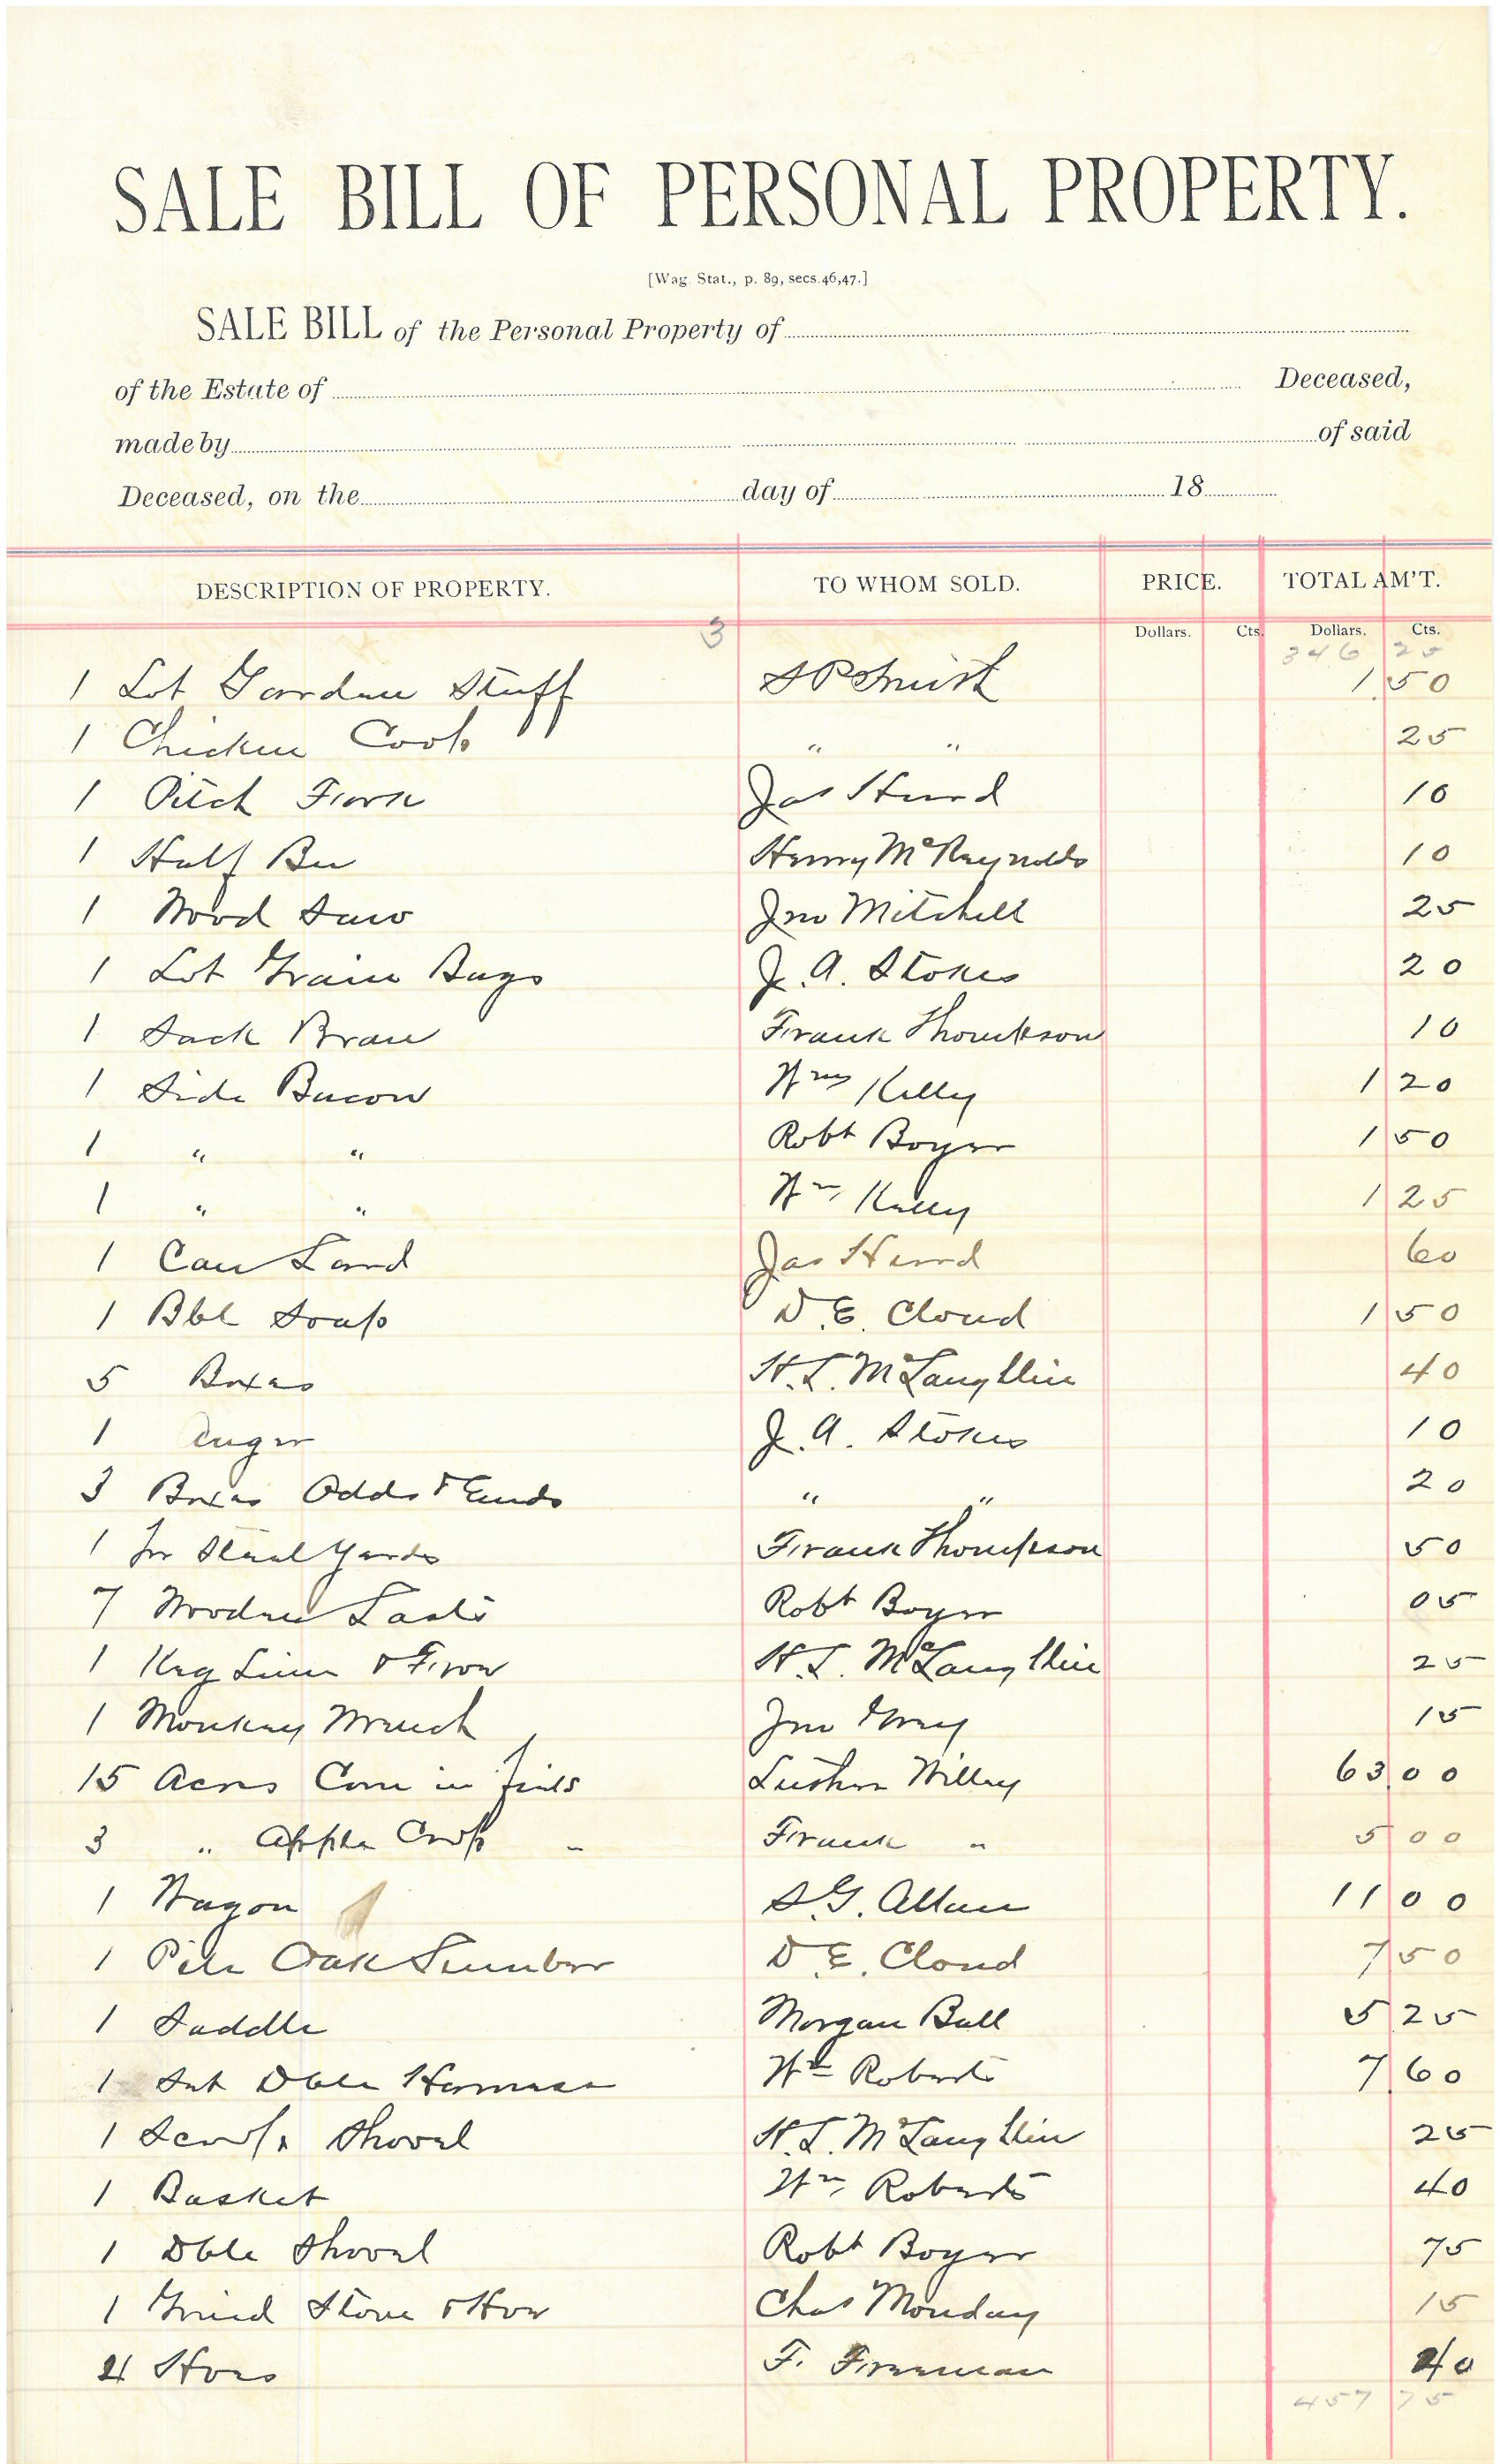 SALE BILL OF PERSONAL PROPERTY.
[Wag. Stat., p. 89, secs. 46, 47.]
SALE BILL of the Personal Property of
of the Estate of Deceased,
made by of said
Deceased, on the day of 18
DESCRIPTION OF PROPERTY. TO WHOM SOLD. PRICE. TOTAL AM'T.
3 Dollars. Cts. Dollars. Cts.
346 25
1 Lot Garden Stuff S P Smith 1 50
1 Chicken Coop " " 25
1 Pitch Fork Jas Hurd 10
1 Half Bu Henry McReynolds 10
1 Wood Saw Jno Mitchell 25
1 Lot Grain Bags J. A. Stokes 20
1 Sack Bran Frank Thompson 10
1 Side Bacon Wm Kelly 1 20
1 " " Robt Boyer 1 50
1 " " Wm Kelly 1 25
1 Can Lard Jas Hurd 60
1 Bbl Soap D. E. Cloud 1 50
5 Boxes H. L. McLaughlin 40
1 Auger J. A. Stokes 10
3 Boxes Odds & Ends " " 20
1 Pr Steel Yards Frank Thompson 50
7 Wooden Lasts Robt Boyer 05
1 Keg Lime & Frow H. L. McLaughlin 25
1 Monkey Wrench Jno Gray 15
15 Acres Corn in field Luther Willey 63 00
3 " Apple Crop " Frank " 5 00
1 Wagon S. G. Allen 11 00
1 Pile Oak Lumber D. E. Cloud 7 50
1 Saddle Morgan Ball 5 25
1 Set Dble Harness Wm Roberts 7 60
1 Scoop Shovel H. L. McLaughlin 25
1 Basket Wm Roberts 40
1 Dble Shovel Robt Boyer 75
1 Grind Stone & Hoe Chas Monday 15
4 Hoes F. Freeman 40
457 75